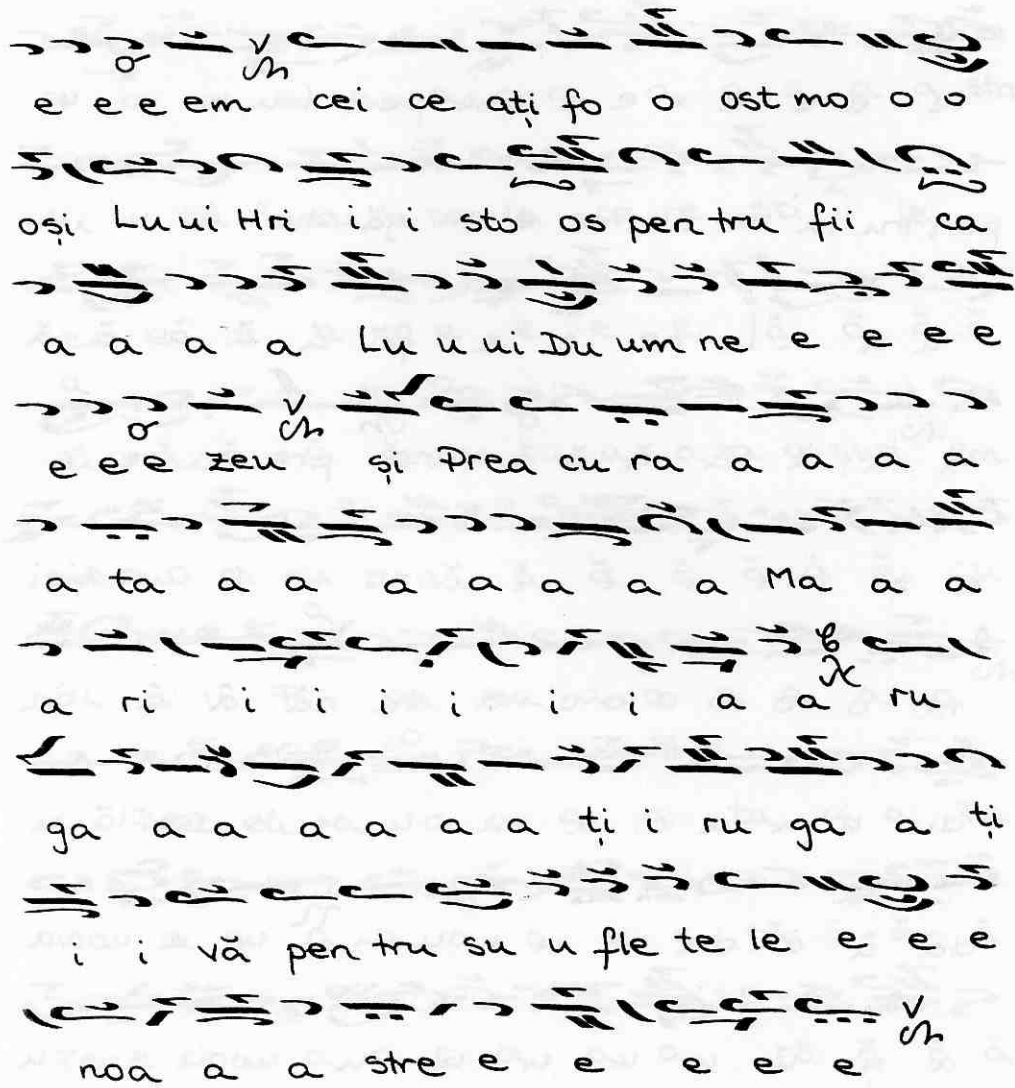 e e e em cei ce ați fo o ost mo o o
oși Lu ui Hri i i sto os pen tru fii ca
a a a a a Lu u ui Du um ne e e e e
e e e zeu și Prea cu ra a a a a
a ta a a a a a a a Ma a a
a ri i i i i i i a a ru
ga a a a a a a ți i ru ga a ți
i i vă pen tru su u fle te le e e e
noa a a stre e e e e e